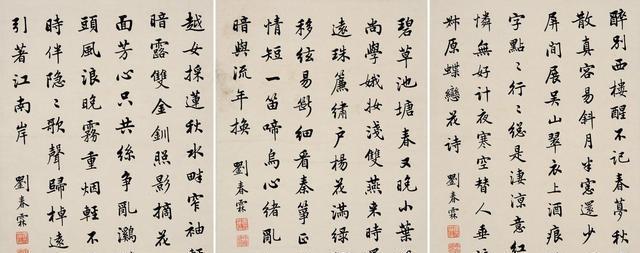 醉別西樓醒不記春夢秋
散真容易斜月半窓還少
屏間展吳山翠衣上酒痕
字點〻行〻總是淒涼意紅
憐無好計夜寒空替人垂
叔原蝶戀花詩 劉春霖
碧草池塘春又晚小葉
尚學娥妝淺雙燕來時
遠珠簾繡戶楊花滿綠
移絃易斷細看秦箏正
情短一笛啼烏心緒亂
暗與流年換 劉春霖
越女採蓮秋水畔窄袖
暗露雙金釧照影摘花
面芳心只共絲爭亂鸂
頭風浪晚霧重烟輕不
時伴隱〻歌聲歸棹遠
引著江南岸 劉春霖